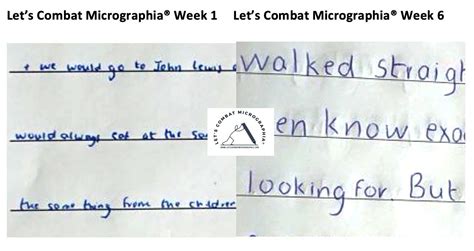 Let's Combat Micrographia® Week 1
Let's Combat Micrographia® Week 6
+ we would go to John Lewis
would always eat at the
the same thing from the children
LET'S COMBAT MICROGRAPHIA
walked straigh
en know exa
looking for. But